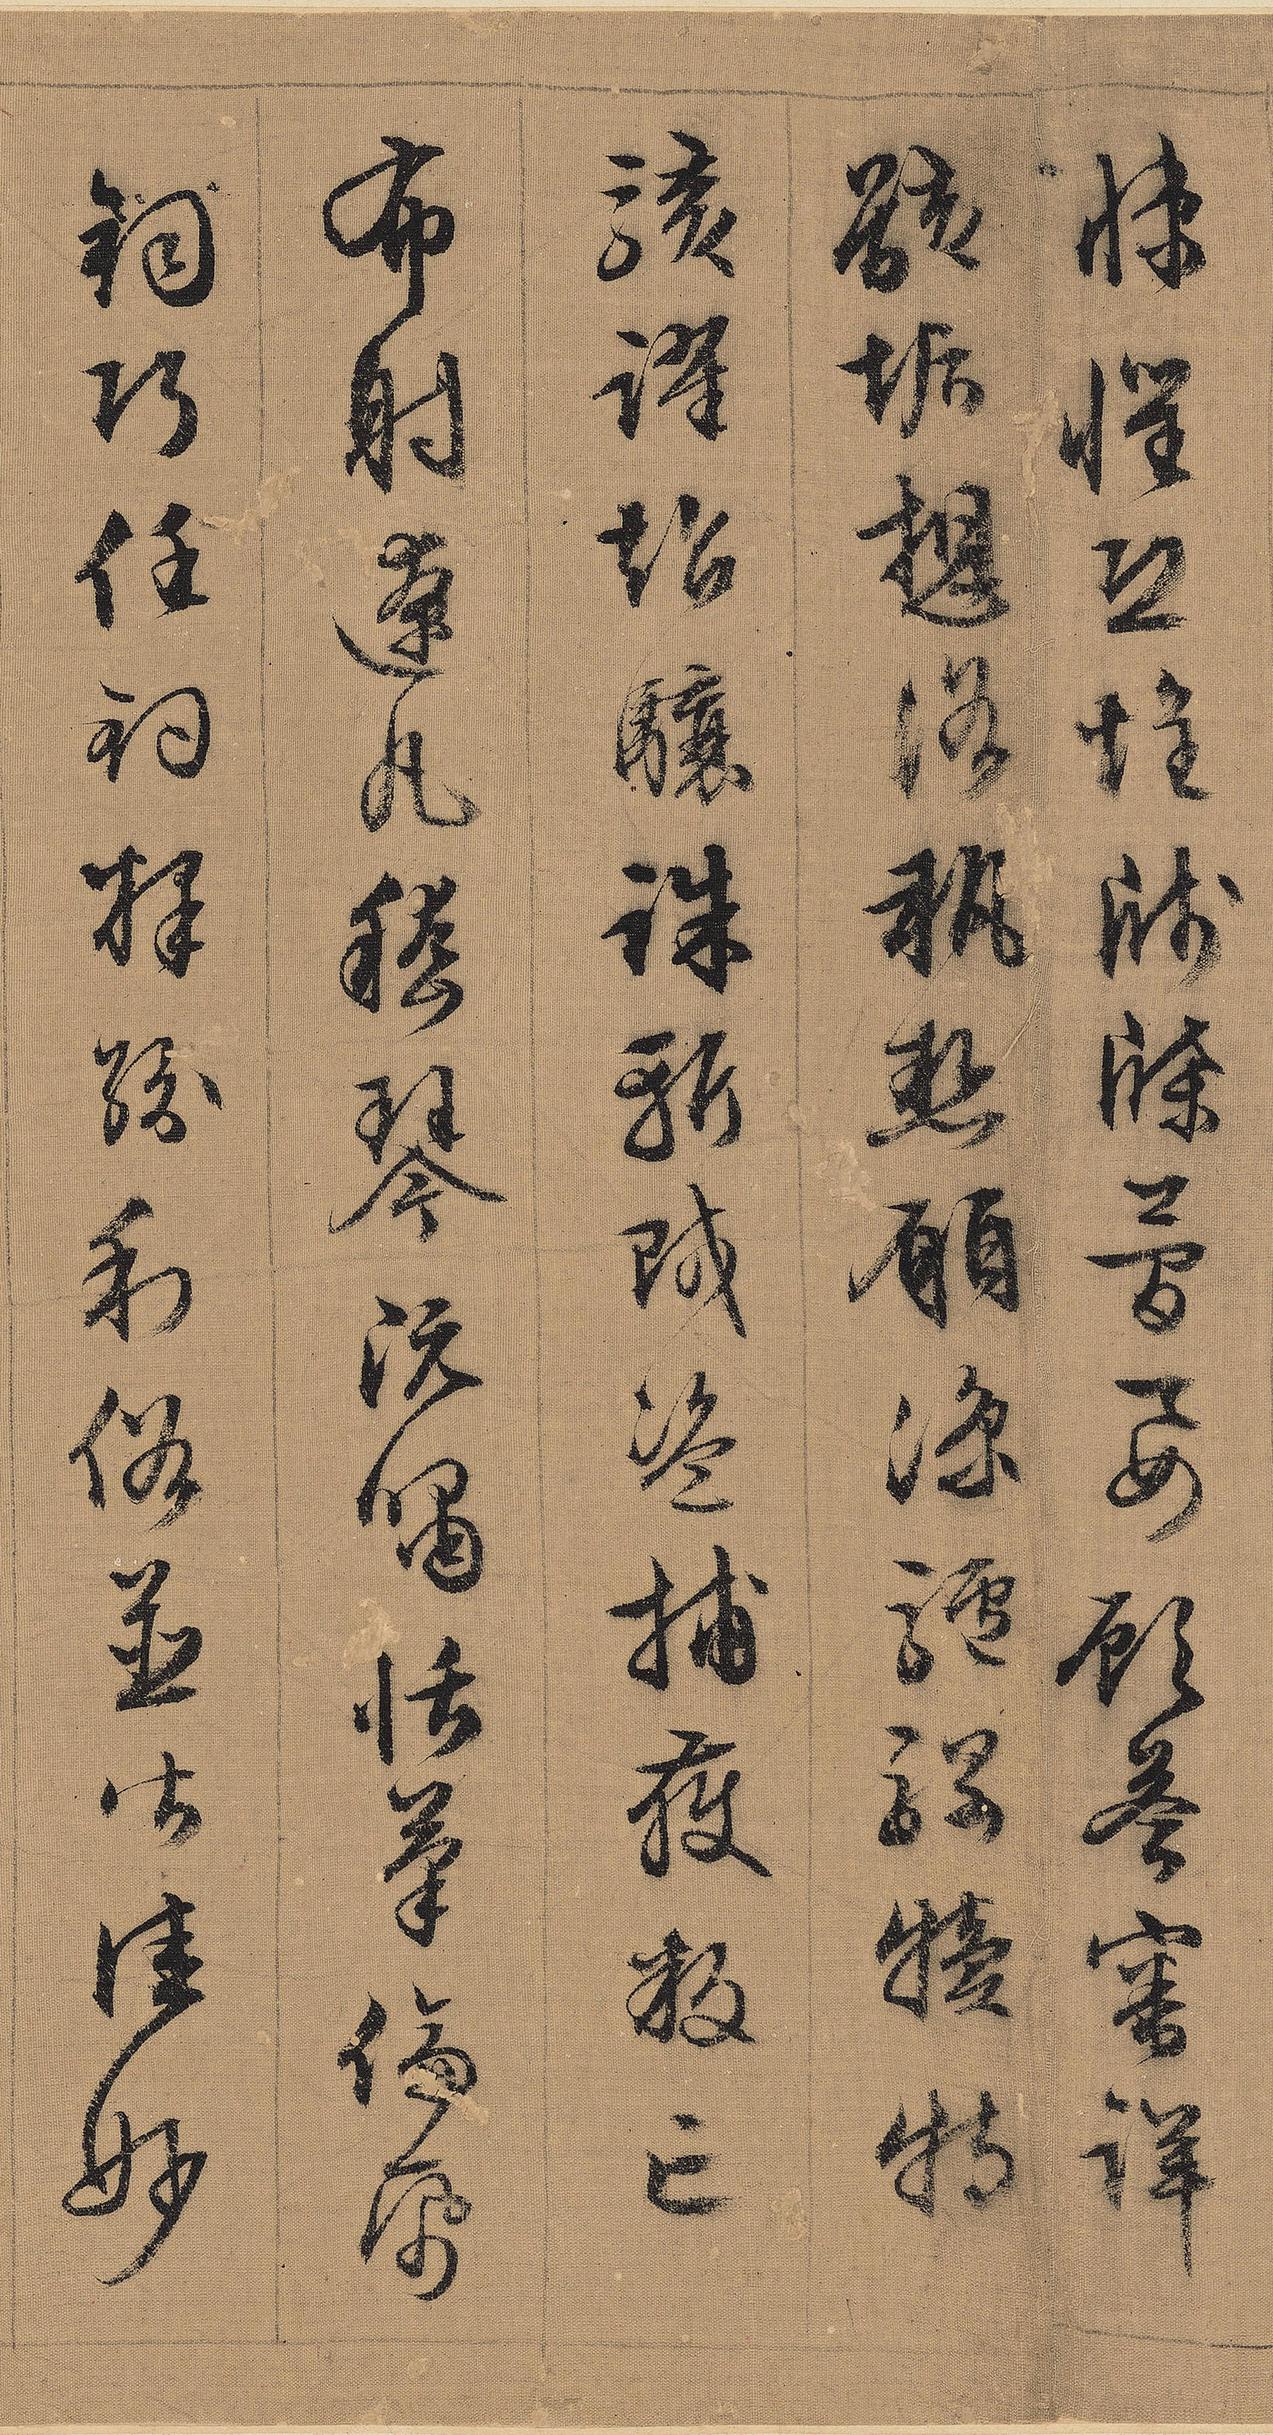 悚懼恐惶牋牒簡要顧答審詳
骸垢想浴執熱願涼驢騾犢特
駭躍超驤誅斬賊盜捕獲叛亡
布射遼丸嵇琴阮嘯恬筆倫紙
鈞巧任釣釋紛利俗並皆佳妙